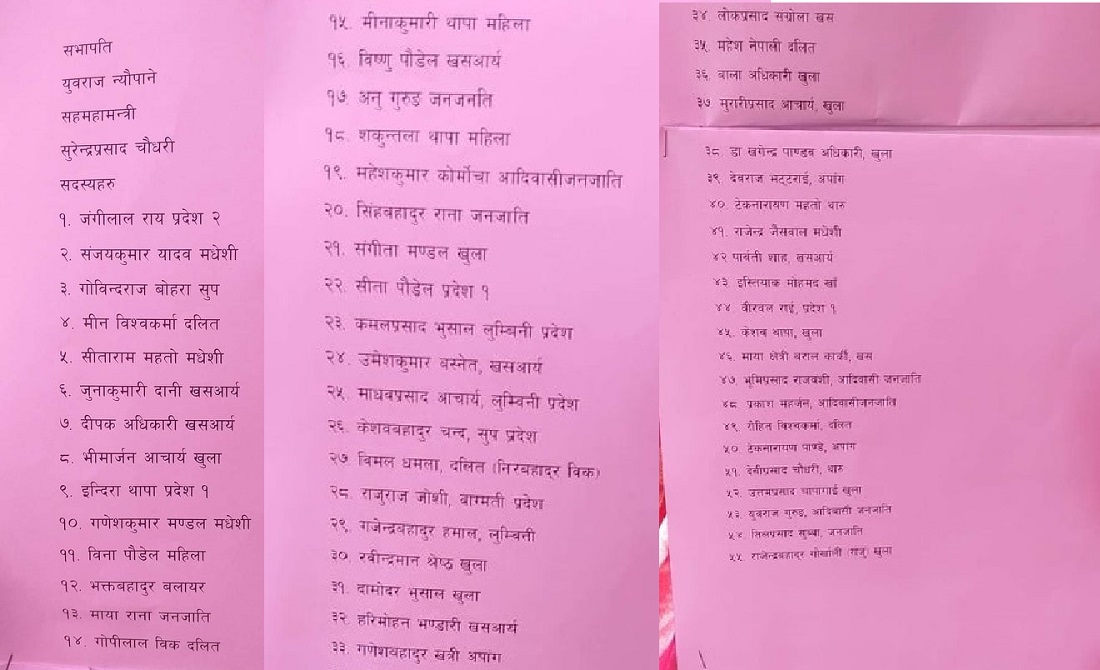 सभापति
युवराज न्यौपाने
सहमहामन्त्री
सुरेन्द्रप्रसाद चौधरी
सदस्यहरु
१. जंगीलाल राय प्रदेश २
२. संजयकुमार यादव मधेशी
३. गोविन्दराज बोहरा सुप
४. मीन विश्वकर्मा दलित
५. सीताराम महतो मधेशी
६. जुनाकुमारी दानी खसआर्य
७. दीपक अधिकारी खसआर्य
८. भीमार्जन आचार्य खुला
९. इन्दिरा थापा प्रदेश १
१०. गणेशकुमार मण्डल मधेशी
११. विना पौडेल महिला
१२. भक्तबहादुर बलायर
१३. माया राना जनजाति
१४. गोपीलाल विक दलित
१५. मीनाकुमारी थापा महिला
१६. विष्णु पौडेल खसआर्य
१७. अनु गुरुङ जनजनति
१८. शकुन्तला थापा महिला
१९. महेशकुमार कोर्मोचा आदिवासीजनजाति
२०. सिंहबहादुर राना जनजाति
२१. संगीता मण्डल खुला
२२. सीता पौडेल प्रदेश १
२३. कमलप्रसाद भुसाल लुम्बिनी प्रदेश
२४. उमेशकुमार बस्नेत, खसआर्य
२५. माधवप्रसाद आचार्य, लुम्बिनी प्रदेश
२६. केशवबहादुर चन्द, सुप प्रदेश
२७. विमल धमला, दलित (निरबहादुर विक)
२८. राजुराज जोशी, वाग्मती प्रदेश
२९. गजेन्द्रबहादुर हमाल, लुम्बिनी
३०. रवीन्द्रमान श्रेष्ठ खुला
३१. दामोदर भुसाल खुला
३२. हरिमोहन भण्डारी खसआर्य
३३. गणेशबहादुर खत्री अपांग
३४. लोकप्रसाद सग्रोला खस
३५. महेश नेपाली दलित
३६. बाला अधिकारी खुला
३७ मुरारीप्रसाद आचार्य, खुला
३८. डा खगेन्द्र पाण्डव अधिकारी, खुला
३९. देवराज भट्टराई, अपांग
४०. टेकनारायण महतो थारु
४१. राजेन्द्र जैसवाल मधेशी
४२ पार्वती शाह, खसआर्य
४३. इस्तियाक मोहमद खाँ
४४. वीरवल राई, प्रदेश १
४५. केशव थापा, खुला
४६. माया क्षेत्री बराल कार्की, खस
४७. भूमिप्रसाद राजवंशी, आदिवासी जनजाति
४८. प्रकाश महर्जन, आदिवासीजनजाति
४९. रोहिन विश्वकर्मा, दलित
५०. टेकनारायण पाण्डे, अपांग
५१. देवीप्रसाद चौधरी, थारु
५२. उत्तमप्रसाद चापागाई खुला
५३. युवराज गुरुङ, आदिवासी जनजाति
५४. तिलप्रसाद सुब्बा, जनजाति
५५. राजेन्द्रबहादुर गोर्खाली (राजु) खुला